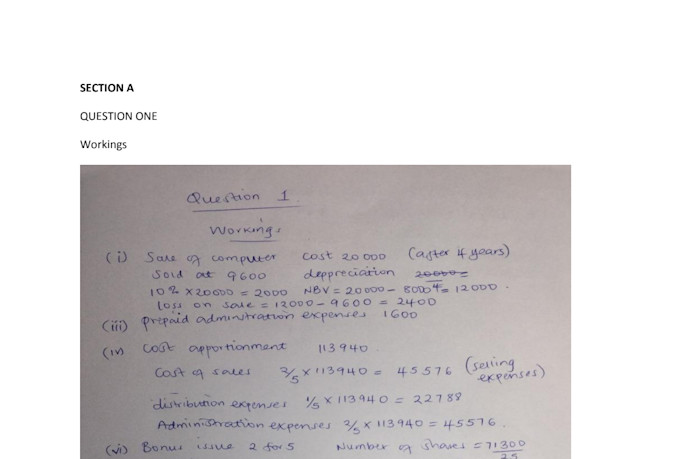 SECTION A
QUESTION ONE
Workings
Question 1
Workings
(i) Sale of computer cost 20 000 (after 4 years)
Sold at 9600 deppreciation 20000=
10% x20000 = 2000 NBV = 20000 - 8000 = 12000.
loss on sale = 12000 - 9600 = 2400
(iii) prepaid adminitration expenses 1600
(iv) Cost apportionment 113940.
Cost of sales 2/5 x 113940 = 45576 (selling expenses)
distribution expenses 1/5 x 113940 = 22788
Administration expenses 2/5 x 113940 = 45576.
(vi) Bonus issue 2 for 5 Number of shares = 71300
25